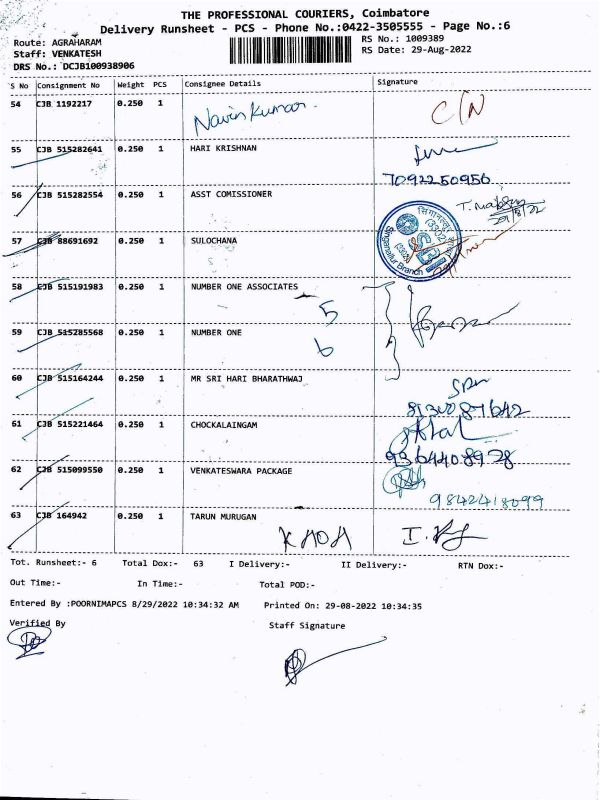 THE PROFESSIONAL COURIERS, Coimbatore
Delivery Runsheet - PCS - Phone No.:0422-3505555 - Page No.:6
Route: AGRAHARAM RS No.: 1009389
Staff: VENKATESH RS Date: 29-Aug-2022
DRS No.: DCJB100938906
S No Consignment No Weight PCS Consignee Details Signature
54 CJB 1192217 0.250 1 Navin Kumar. C/N
55 CJB 515282641 0.250 1 HARI KRISHNAN
7092250956
56 CJB 515282554 0.250 1 ASST COMISSIONER
57 CJB 88691692 0.250 1 SULOCHANA
Singanallur Branch
58 CJB 515191983 0.250 1 NUMBER ONE ASSOCIATES
5
59 CJB 515285568 0.250 1 NUMBER ONE
6
60 CJB 515164244 0.250 1 MR SRI HARI BHARATHWAJ
61 CJB 515221464 0.250 1 CHOCKALAINGAM
9364408978
62 CJB 515099550 0.250 1 VENKATESWARA PACKAGE
9842418099
63 CJB 164942 0.250 1 TARUN MURUGAN
Tot. Runsheet:- 6 Total Dox:- 63 I Delivery:- II Delivery:- RTN Dox:-
Out Time:- In Time:- Total POD:-
Entered By :POORNIMAPCS 8/29/2022 10:34:32 AM Printed On: 29-08-2022 10:34:35
Verified By Staff Signature